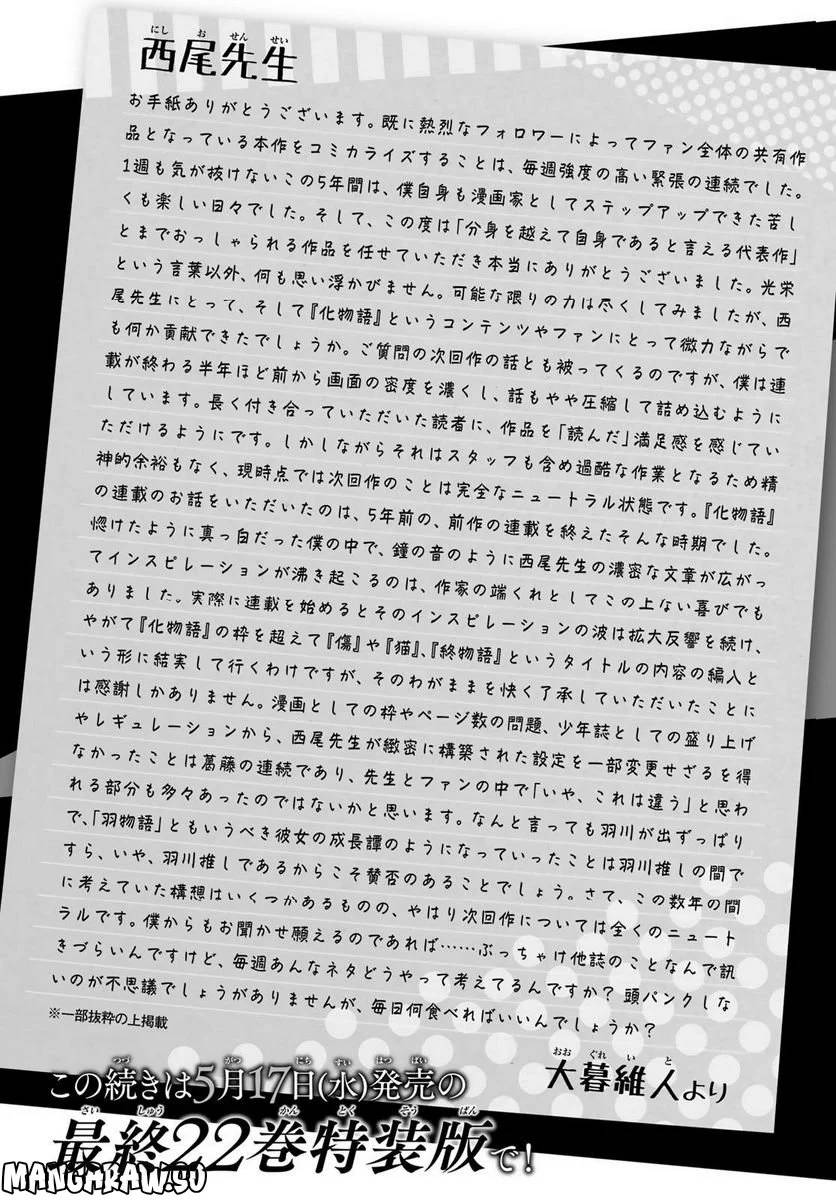 にしおせんせい
西尾先生
お手紙ありがとうございます。既に熱烈なフォロワーによってファン全体の共有作
品となっている本作をコミカライズすることは、毎週強度の高い緊張の連続でした。
1週も気が抜けないこの5年間は、僕自身も漫画家としてステップアップできた苦し
くも楽しい日々でした。そして、この度は「分身を越えて自身であると言える代表作」
とまでおっしゃられる作品を任せていただき本当にありがとうございました。光栄
という言葉以外、何も思い浮かびません。可能な限りの力は尽くしてみましたが、西
尾先生にとって、そして『化物語』というコンテンツやファンにとって微力ながらで
も何か貢献できたでしょうか。ご質問の次回作の話とも被ってくるのですが、僕は連
載が終わる半年ほど前から画面の密度を濃くし、話もやや圧縮して詰め込むように
しています。長く付き合っていただいた読者に、作品を「読んだ」満足感を感じてい
ただけるようにです。しかしながらそれはスタッフも含め過酷な作業となるため精
神的余裕もなく、現時点では次回作のことは完全なニュートラル状態です。『化物語』
の連載のお話をいただいたのは、5年前の、前作の連載を終えたそんな時期でした。
惚けたように真っ白だった僕の中で、鐘の音のように西尾先生の濃密な文章が広がっ
てインスピレーションが沸き起こるのは、作家の端くれとしてこの上ない喜びでも
ありました。実際に連載を始めるとそのインスピレーションの波は拡大反響を続け、
やがて『化物語』の枠を超えて『傷』や『猫』、『終物語』というタイトルの内容の編入と
いう形に結実して行くわけですが、そのわがままを快く了承していただいたことに
は感謝しかありません。漫画としての枠やページ数の問題、少年誌としての盛り上げ
やレギュレーションから、西尾先生が緻密に構築された設定を一部変更せざるを得
なかったことは葛藤の連続であり、先生とファンの中で「いや、これは違う」と思わ
れる部分も多々あったのではないかと思います。なんと言っても羽川が出ずっぱり
で、「羽物語」ともいうべき彼女の成長譚のようになっていったことは羽川推しの間で
すら、いや、羽川推しであるからこそ賛否のあることでしょう。さて、この数年の間
に考えていた構想はいくつかあるものの、やはり次回作については全くのニュート
ラルです。僕からもお聞かせ願えるのであれば……ぶっちゃけ他誌のことなんで訊
きづらいんですけど、毎週あんなネタどうやって考えてるんですか? 頭パンクしな
いのが不思議でしょうがありませんが、毎日何食べればいいんでしょうか?
※一部抜粋の上掲載
おおぐれいと
大暮維人より
つづ がつ にち すい はつばい
この続きは5月17日(水)発売の
さいしゅう かん とくそうばん
最終22巻特装版で!
MANGARAW.SO